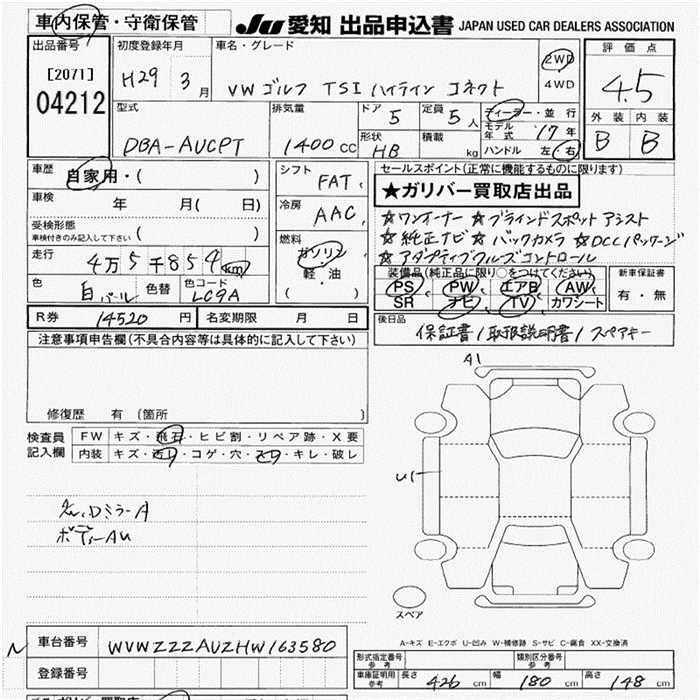 車内保管・守衛保管
JU 愛知 出品申込書 JAPAN USED CAR DEALERS ASSOCIATION
出品番号 初度登録年月 車名・グレード 評価点
[2071] 04212
H29 3月
VW ゴルフ TSI ハイライン コネクト
2WD
4WD
4.5
型式 排気量 ドア 5 定員 5人 ディーラー・並行
モデル年式 '17年
外装 内装
DBA-AUCPT 1400cc 形状 HB 積載 kg ハンドル 左・右
B B
車歴 自家用・( )
シフト FAT
セールスポイント(正常に機能するものに限ります)
★ガリバー買取店出品
車検 年 月( 日)
冷房 AAC
★ワンオーナー ★ブラインドスポットアシスト
受検形態
車検付きのみ記入して下さい ( )
★純正ナビ ★バックカメラ ★DCCパッケージ
★アダプティブクルーズコントロール
走行 4万5千854km
燃料 ガソリン 軽・油
装備品(純正品に限り○をつけてください) 新車保証書
PS PW エアB AW 有・無
SR ナビ TV カワシート
色 白パール 色替 色コード LC9A
R券 14520円 名変期限 月 日
後日品
保証書/取扱説明書/スペアキー
注意事項申告欄(不具合内容等は具体的に記入して下さい)
修復歴 有 (箇所 )
A1
U1
検査員記入欄
FW キズ・飛石・ヒビ割・リペア跡・X要
内装 キズ・汚れ・コゲ・穴・スリ・キレ・破レ
DミラーA
ボディーAU
スペア
A-キズ E-エクボ U-凹み W-補修跡 S-サビ C-腐食 XX-交換済
車台番号 WVWZZZAUZHW163580
登録番号
型式指定番号 参考 類別区分番号 参考
車庫証明用 参考 長さ 426cm 幅 180cm 高さ 148cm